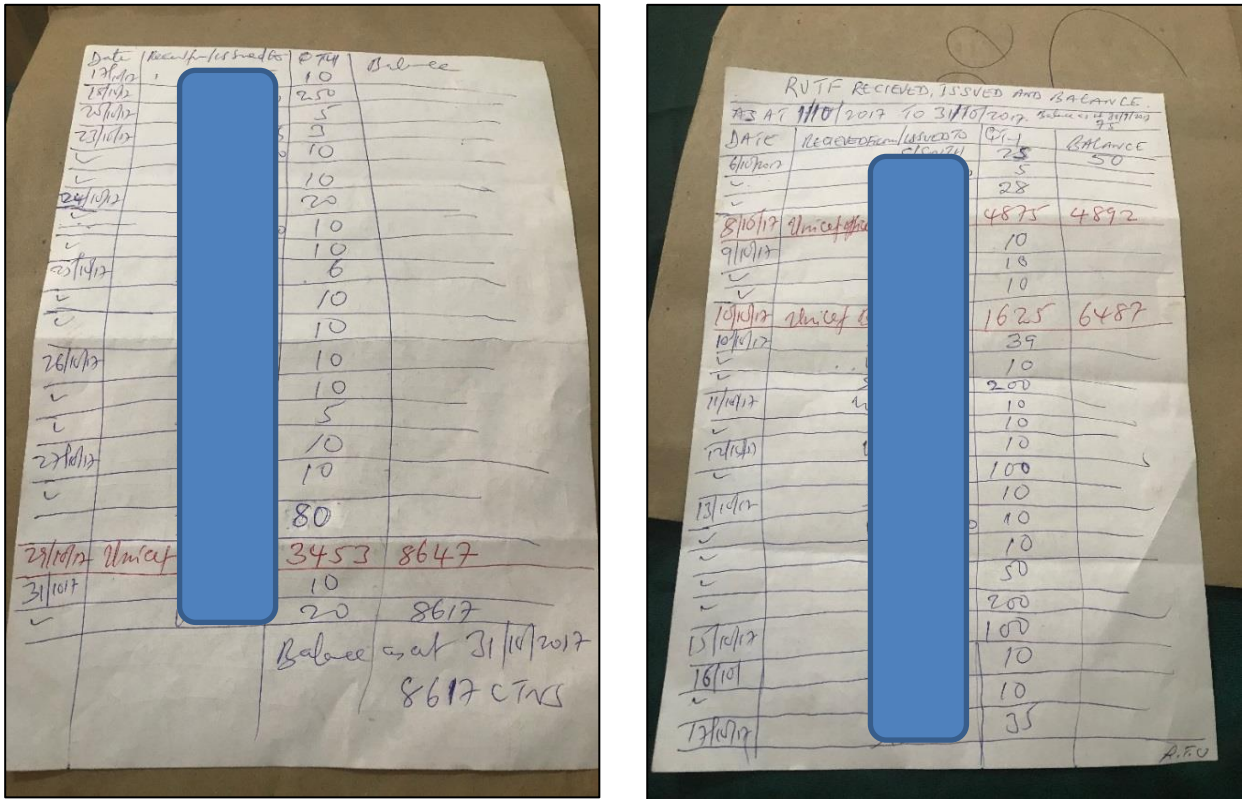 Date Qty Balance
17/10/17 10
18/10/17 250
5
23/10/17 3
✓ 10
✓ 10
24/10/17 20
✓ 10
✓ 10
25/10/17 6
✓ 10
✓ 10
26/10/17 10
✓ 10
✓ 5
27/10/17 10
✓ 10
80
29/10/17 Unicef 3453 8647
31/10/17 10
✓ 20 8617
Balance as at 31/10/2017
8617 CTNS
RUTF RECIEVED, ISSUED AND BALANCE
AS AT 1/10/2017 TO 31/10/2017 Balance as at 75
DATE RECIEVED From/ISSUED TO QTY BALANCE
6/10/2017 25 50
✓ 5
✓ 28
8/10/17 Unicef office 4875 4892
9/10/17 10
✓ 10
✓ 10
10/10/17 Unicef 1625 6487
10/10/17 39
✓ 10
✓ 200
11/10/17 10
✓ 10
12/10/17 10
✓ 100
13/10/17 10
✓ 10
✓ 10
✓ 50
✓ 200
15/10/17 100
16/10/ 10
✓ 10
17/10/17 35
A.T.U